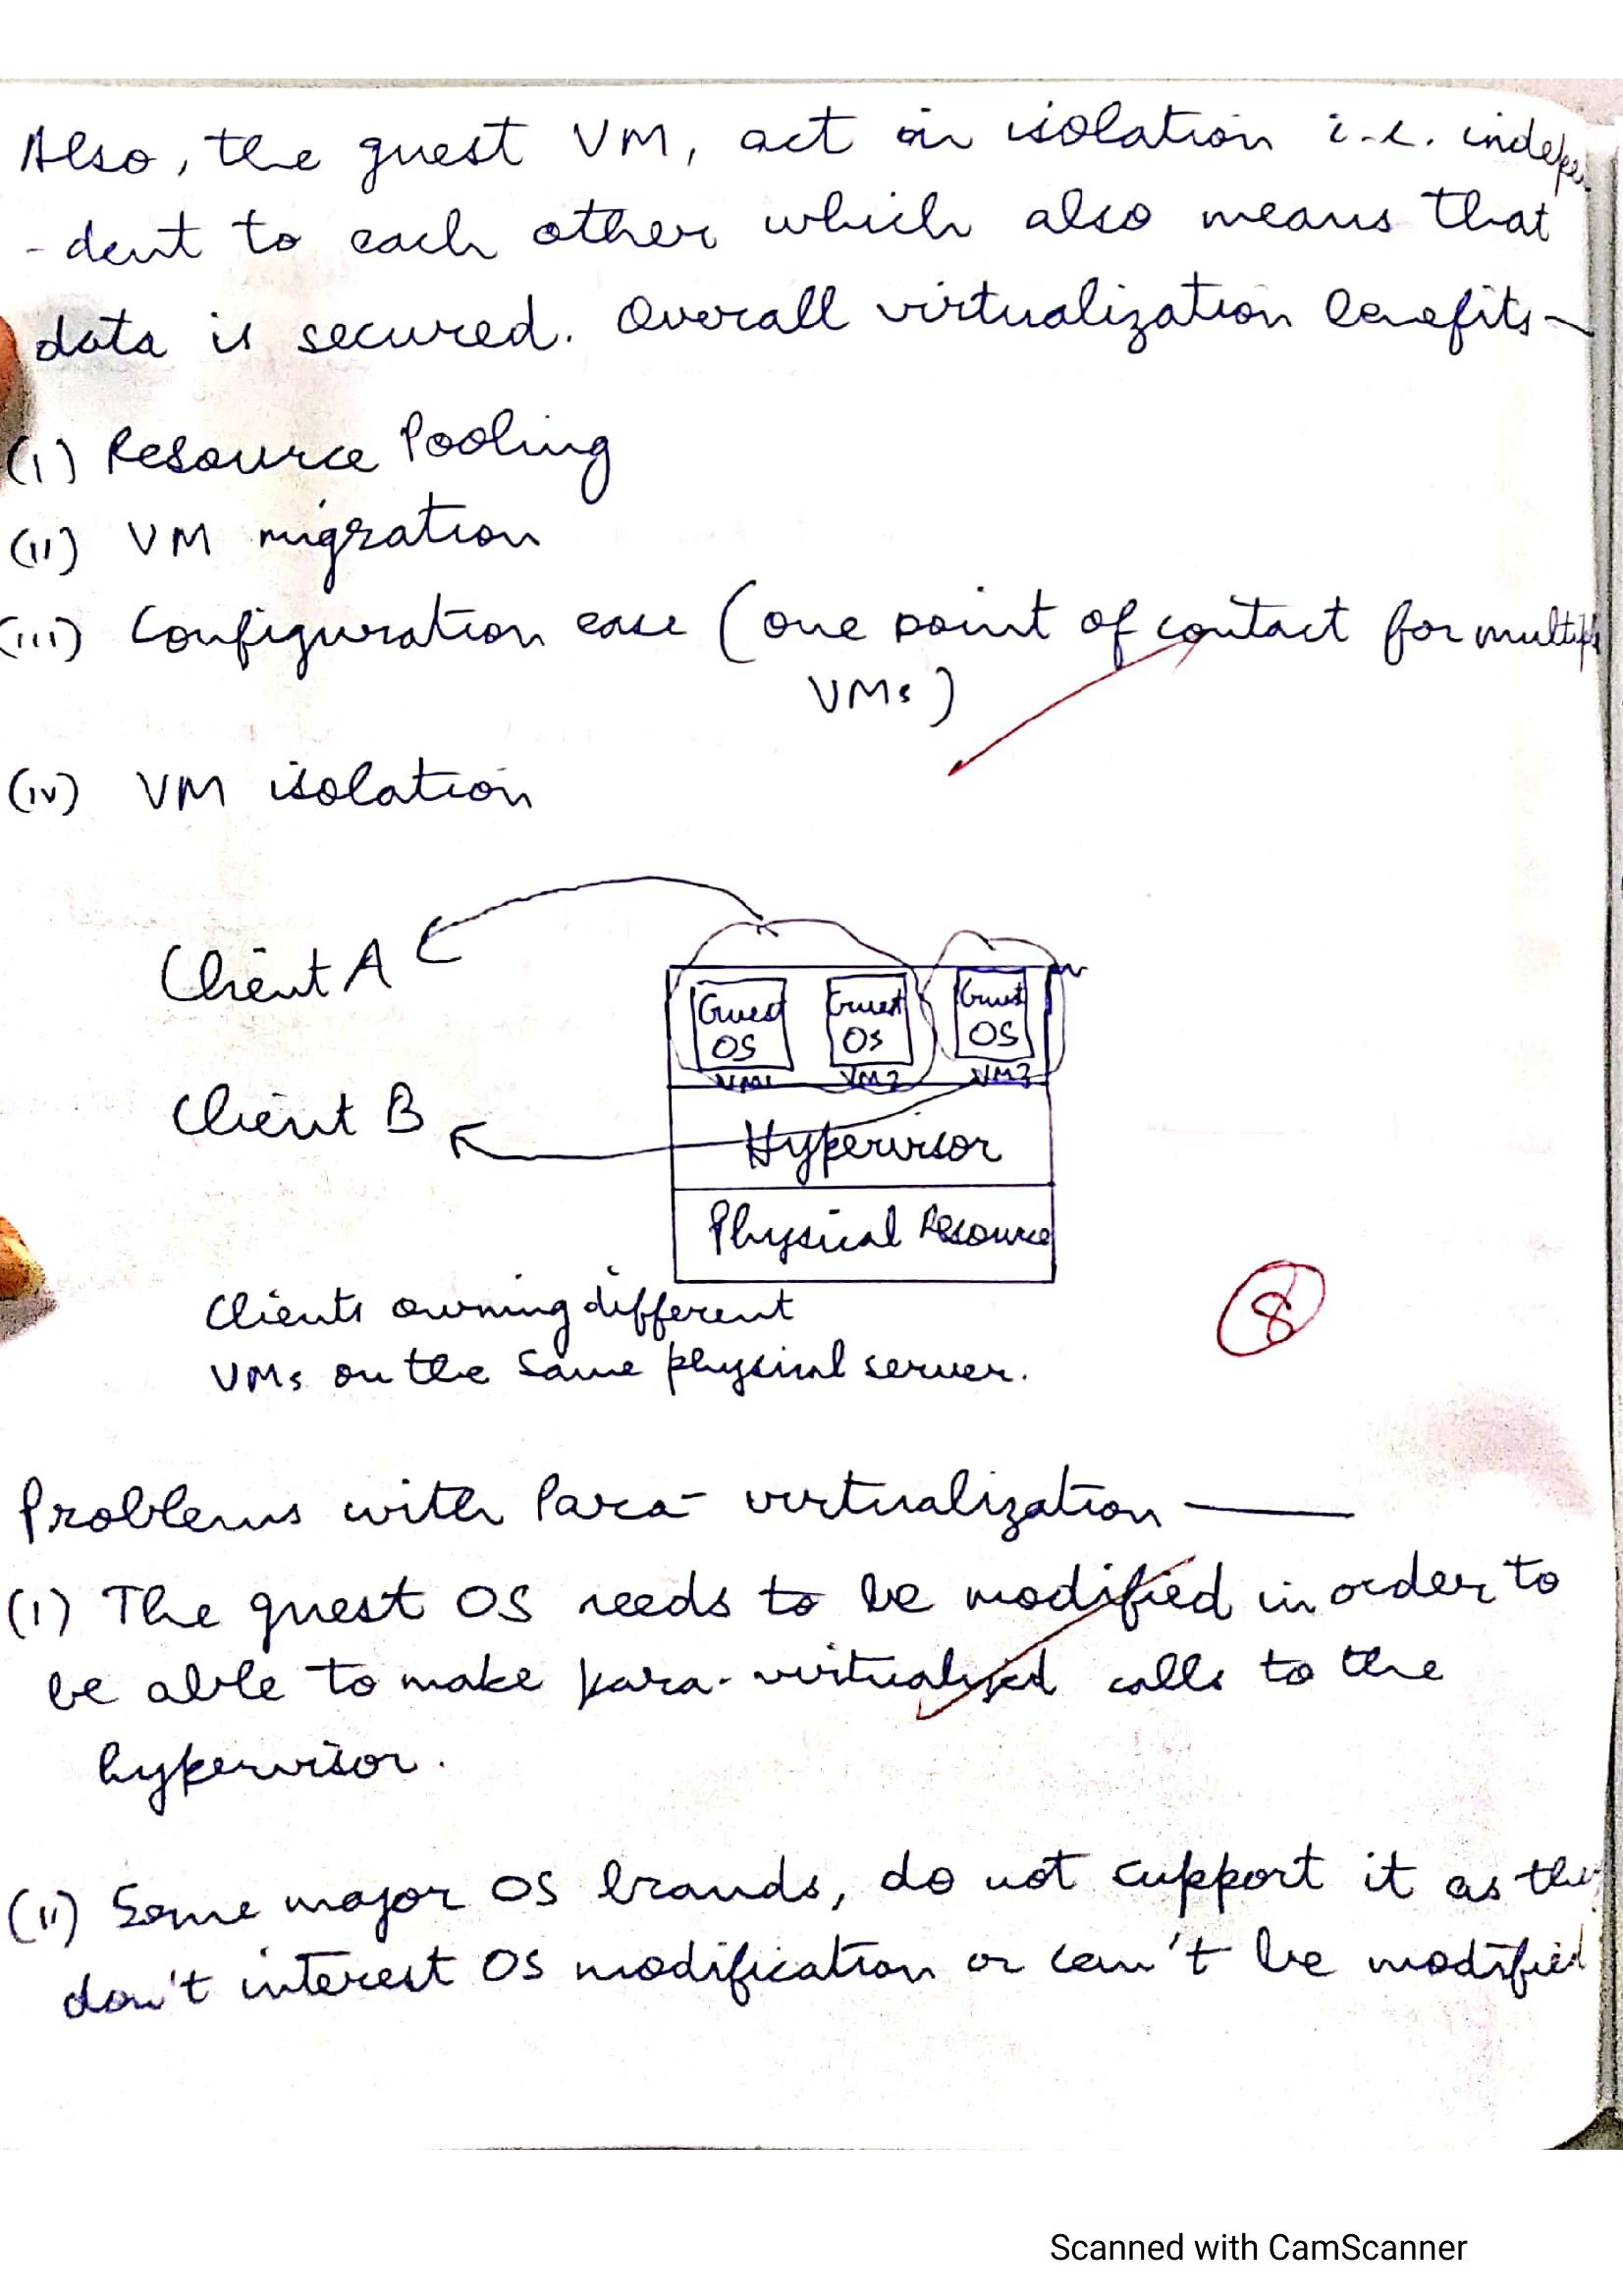 Also, the guest VM, act in isolation i.e. indepen
- dent to each other which also means that
data is secured. Overall virtualization benefits -
(i) Resource Pooling
(ii) VM migration
(iii) Configuration ease (one point of contact for multiple
VMs)
(iv) VM isolation
Client A
Guest OS VM1
Guest OS VM2
Guest OS VM3
Client B
Hypervisor
Physical Resource
Clients owning different
VMs on the same physical server.
8
Problems with Para- virtualization —
(i) The guest OS needs to be modified in order to
be able to make para-virtualised calls to the
hypervisor.
(ii) Some major OS brands, do not support it as they
don't interest OS modification or can't be modified
Scanned with CamScanner